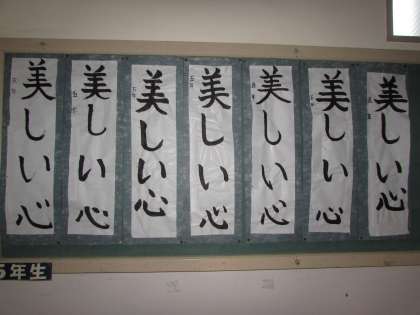 美しい心
美しい心
美しい心
美しい心
美しい心
美しい心
美しい心
5年生